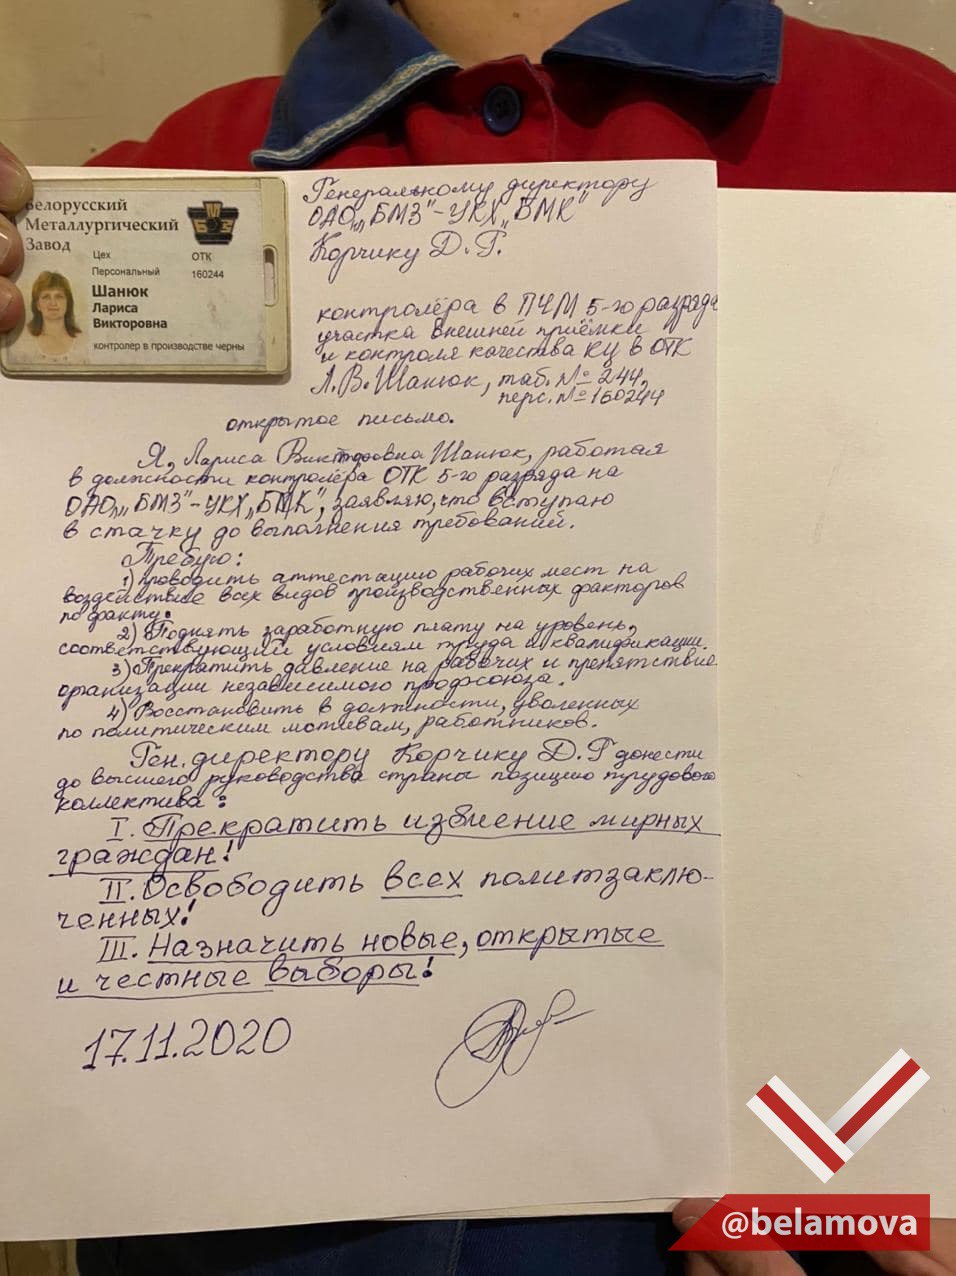 Белорусский
Металлургический
Завод
БМЗ
Цех ОТК
Персональный 160244
Шанюк
Лариса
Викторовна
контролер в производстве черны
Генеральному директору
ОАО „БМЗ"-УКХ „БМК"
Корчику Д. Г.
контролёра в ПЧМ 5-го разряда
участка внешней приёмки
и контроля качества КЦ в ОТК
Л.В. Шанюк, таб. № 244,
перс. № 160244
открытое письмо.
Я, Лариса Викторовна Шанюк, работая
в должности контролёра ОТК 5-го разряда на
ОАО „БМЗ"-УКХ „БМК", заявляю, что вступаю
в стачку до выполнения требований.
Требую:
1) Проводить аттестацию рабочих мест на
воздействие всех видов производственных факторов
по факту.
2) Поднять заработную плату на уровень,
соответствующий условиям труда и квалификации.
3) Прекратить давление на рабочих и препятствие
организации независимого профсоюза.
4) Восстановить в должности, уволенных
по политическим мотивам, работников.
Ген. директору Корчику Д. Г донести
до высшего руководства страны позицию трудового
коллектива:
I. Прекратить избиение мирных
граждан!
II. Освободить всех политзаклю-
ченных!
III. Назначить новые, открытые
и честные выборы!
17.11.2020
@belamova